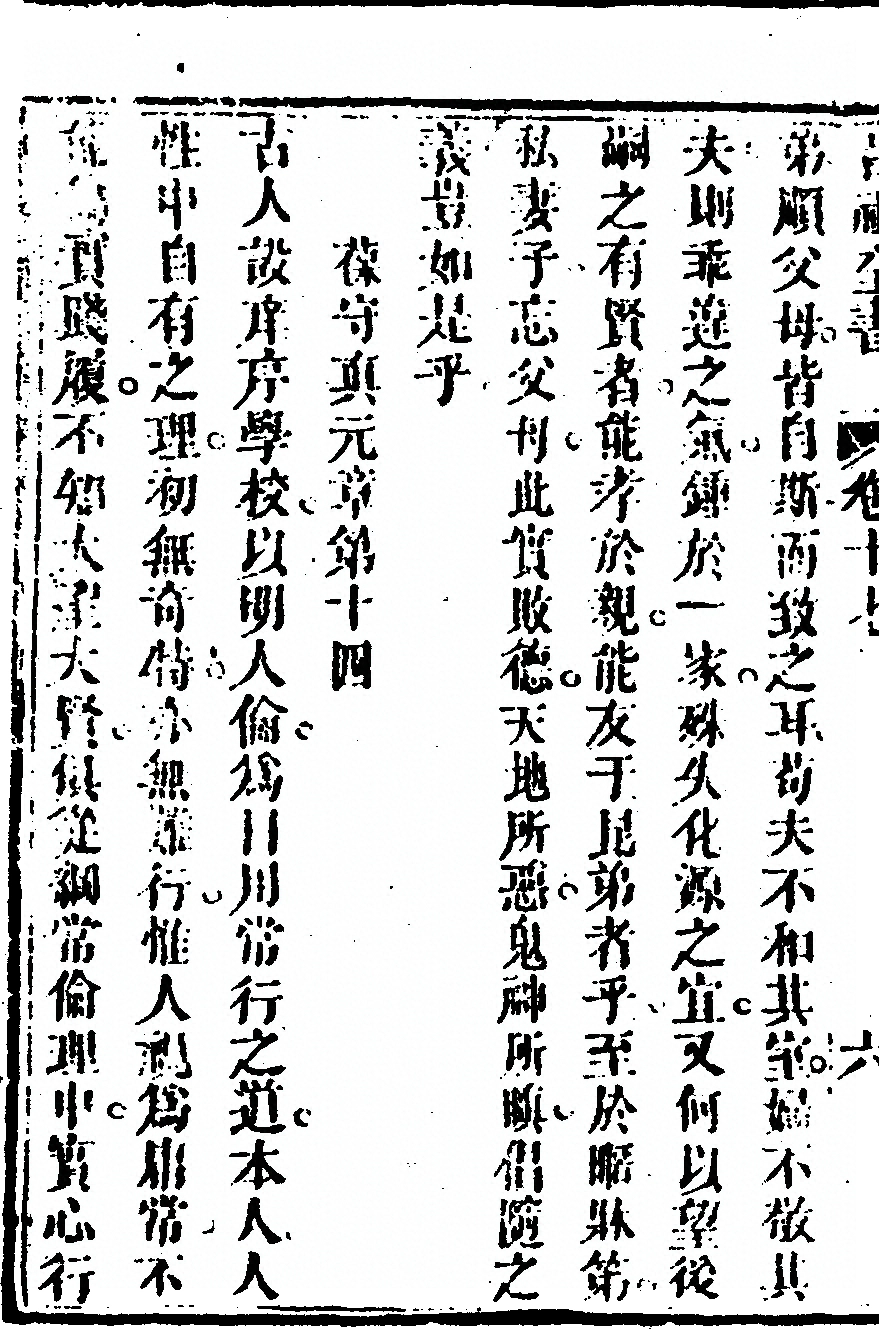 全書　卷十七　六
弟順父母皆自斯而致之耳苟夫不和其室婦不敬其
夫則乖逆之氣鍾於一家殊失化源之宜又何以望後
嗣之有賢者能孝於親能友于昆弟者乎至於暱牀笫
私妻子忘父母此實敗德天地所惡鬼神所瞋倡隨之
義豈如是乎
葆守真元章第十四
古人設庠序學校以明人倫為日用常行之道本人人
性中自有之理初無奇特亦無難行惟人視為庸常不
真踐履不知大聖大賢俱從綱常倫理中實心行